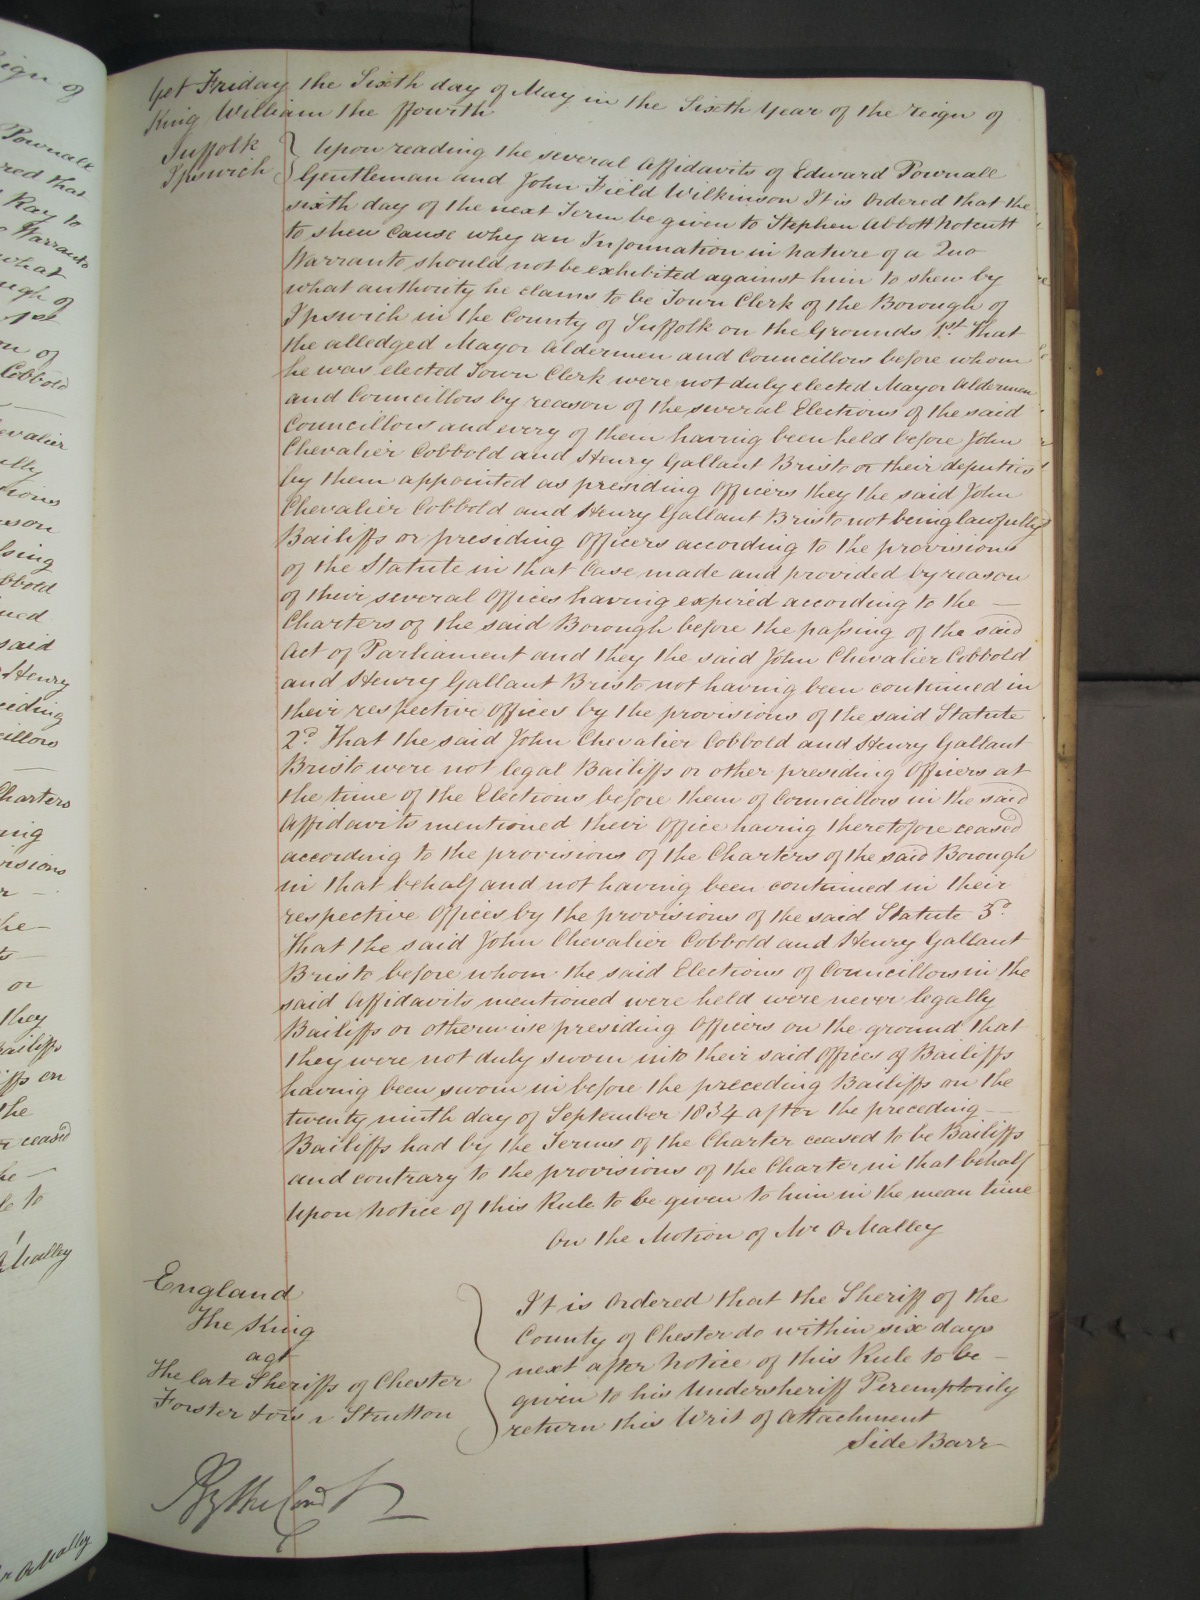 Yet Friday the Sixth day of May in the Sixth Year of the reign of
King William the ffourth
Suffolk
Ipswich
Upon reading the several affidavits of Edward Pownall
Gentleman and John Field Wilkinson It is Ordered that the
sixth day of the next Term be given to Stephen Abbott Notcutt
to shew Cause why an Information in nature of a Quo
Warranto should not be exhibited against him to shew by
what authority he claims to be Town Clerk of the Borough of
Ipswich in the County of Suffolk on the Grounds 1st. That
the alledged Mayor Aldermen and Councillors before whom
he was elected Town Clerk were not duly elected Mayor Aldermen
and Councillors by reason of the several Elections of the said
Councillors and every of them having been held before John
Chevalier Cobbold and Henry Gallant Bristo or their deputies
by them appointed as presiding Officers they the said John
Chevalier Cobbold and Henry Gallant Bristo not being lawfully
Bailiffs or presiding Officers according to the provisions
of the Statute in that Case made and provided by reason
of their several Offices having expired according to the —
Charters of the said Borough before the passing of the said
Act of Parliament and they the said John Chevalier Cobbold
and Henry Gallant Bristo not having been continued in
their respective Offices by the provisions of the said Statute
2d. That the said John Chevalier Cobbold and Henry Gallant
Bristo were not legal Bailiffs or other presiding Officers at
the time of the Elections before them of Councillors in the said
Affidavits mentioned their Office having theretofore ceased
according to the provisions of the Charters of the said Borough
in that behalf and not having been continued in their
respective Offices by the provisions of the said Statute 3d.
That the said John Chevalier Cobbold and Henry Gallant
Bristo before whom the said Elections of Councillors in the
said Affidavits mentioned were held were never legally
Bailiffs or otherwise presiding Officers on the ground that
they were not duly sworn into their said Offices of Bailiffs
having been sworn in before the preceding Bailiffs on the
twenty ninth day of September 1834 after the preceding —
Bailiffs had by the Terms of the Charter ceased to be Bailiffs
and contrary to the provisions of the Charter in that behalf
Upon Notice of this Rule to be given to him in the mean time
On the Motion of Mr O Malley
England
The King
agt
The late Sheriffs of Chester
Forster &ors v Strutton
It is Ordered that the Sheriff of the
County of Chester do within six days
next after Notice of this Rule to be —
given to his Undersheriff Peremptorily
return this Writ of Attachment
Side Barr
By the Court